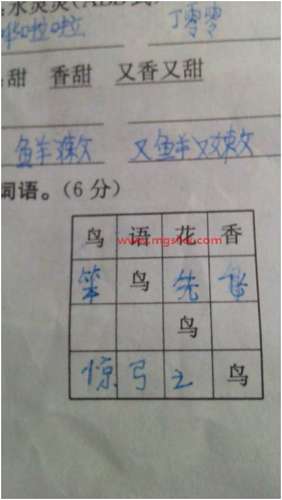 水灵灵(ABB式
啦啦 丁零零
甜 香甜 又香又甜
鲜嫩 又鲜又嫩
词语。(6分)
鸟 语 花 香
www.mgsxx.com
笨 鸟 先 飞
鸟
惊 弓 之 鸟